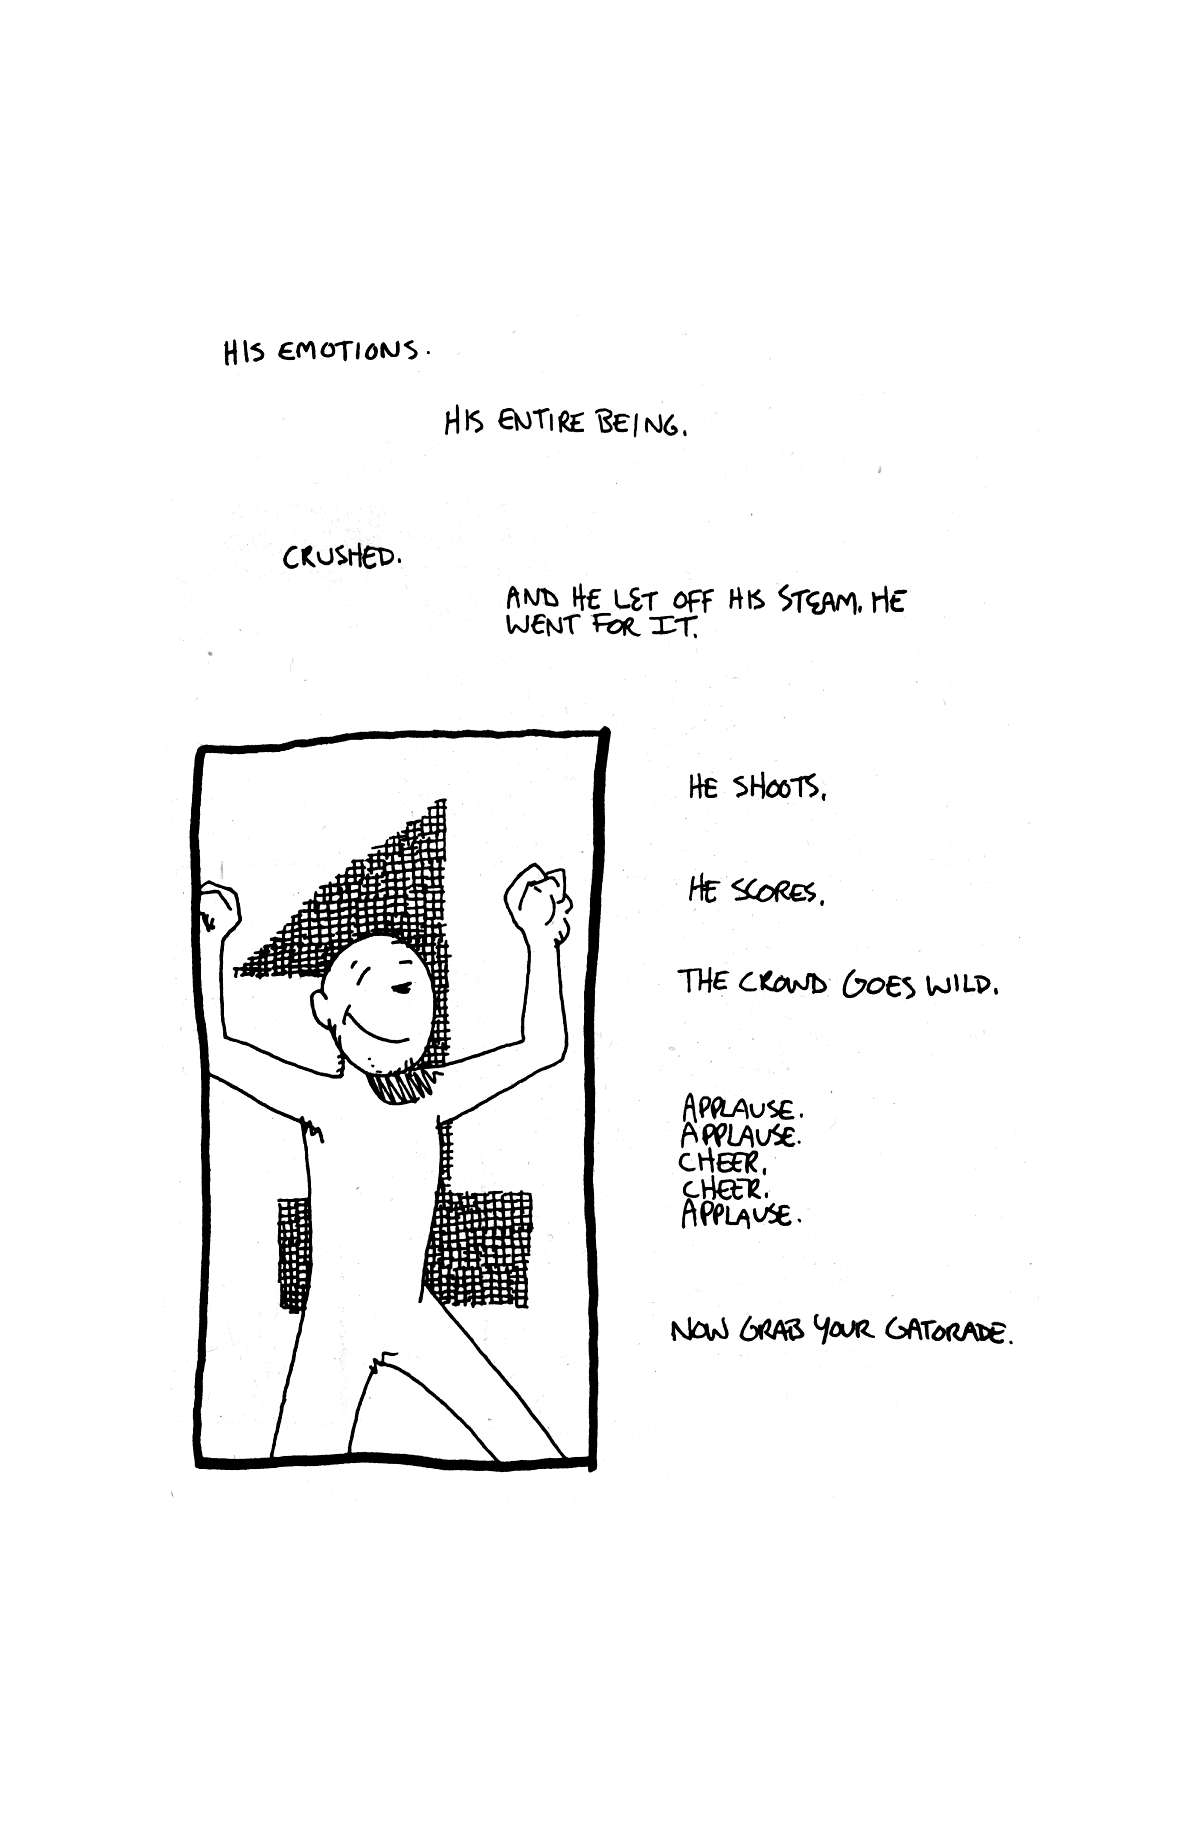 HIS EMOTIONS.
HIS ENTIRE BEING.
CRUSHED.
AND HE LET OFF HIS STEAM. HE
WENT FOR IT.
HE SHOOTS.
HE SCORES.
THE CROWD GOES WILD.
APPLAUSE.
APPLAUSE.
CHEER.
CHEER.
APPLAUSE.
NOW GRAB YOUR GATORADE.